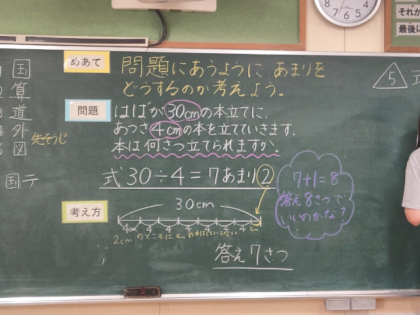 それ
最後に
めあて
問題にあうように あまりを
どうするのか考えよう。
国
算
道
外
図
先そうじ
国テ
問題
はばが30cmの本立てに、
あつさ4cmの本を立てていきます。
本は何さつ立てられますか。
式 30÷4=7あまり2
考え方
30cm
4cm 4 4 4 4 4 4
2cm のところに
答え 7さつ
7+1=8
答え8さつで
いいのかな?
5